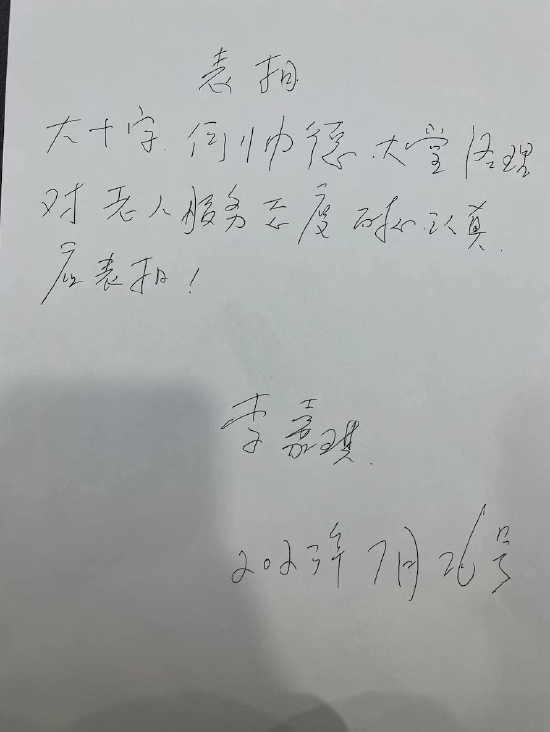 表扬
大十字 何帅德 大堂经理
对老人服务态度耐心认真
应表扬！
李嘉琪
2023年7月26号